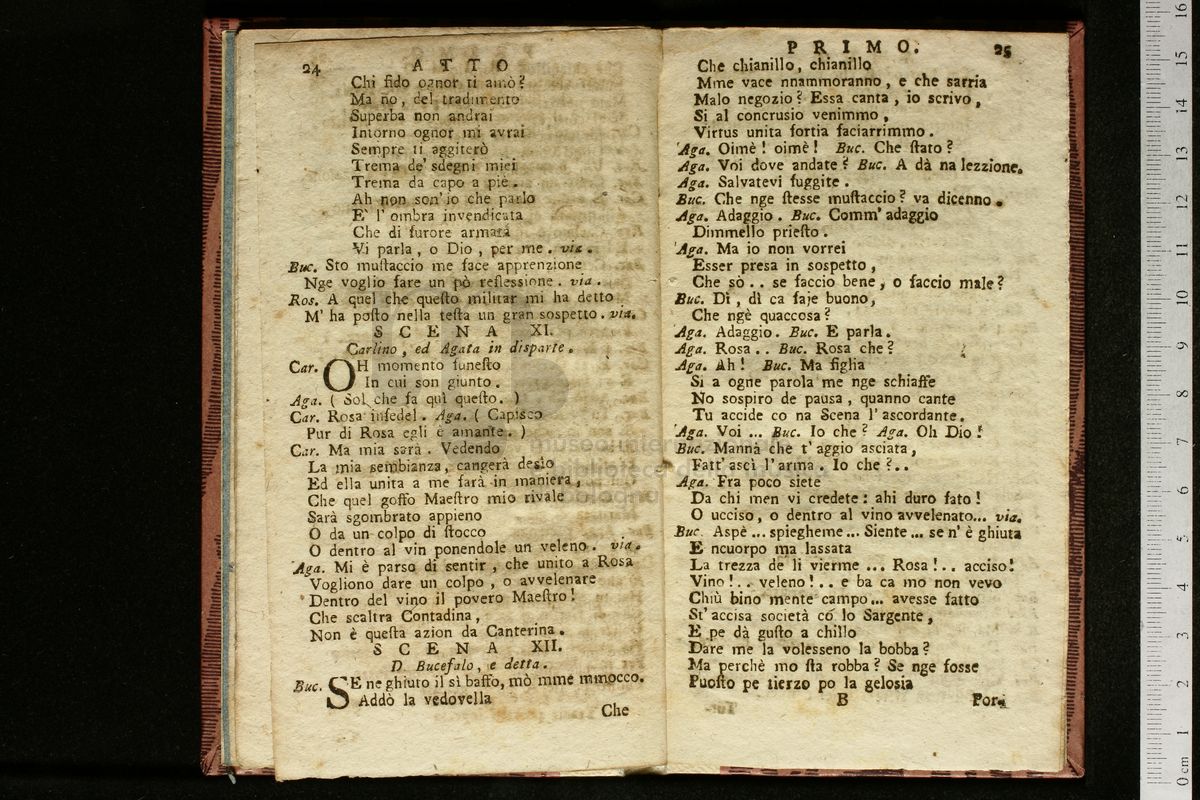 24 ATTO
Chi fido ognor ti amò?
Ma no, del tradimento
Superba non andrai
Intorno ognor mi avrai
Sempre ti aggiterò
Trema de' sdegni miei
Trema da capo a piè.
Ah non son' io che parlo
E' l' ombra invendicata
Che di furore armata
Vi parla, o Dio, per me. via.
Buc. Sto muſtaccio me face apprenzione
Nge voglio fare un pò reſlessione. via.
Ros. A quel che queſto militar mi ha detto
M' ha poſto nella teſta un gran sospetto. via.
SCENA XI.
Carlino, ed Agata in disparte.
Car. OH momento funeſto
In cui son giunto.
Aga. ( Sol che fa quì queſto. )
Car. Rosa infedel. Aga. ( Capisco
Pur di Rosa egli è amante. )
Car. Ma mia sarà. Vedendo
La mia sembianza, cangerà desio
Ed ella unita a me farà in maniera,
Che quel goffo Maeſtro mio rivale
Sarà sgombrato appieno
O da un colpo di ſtocco
O dentro al vin ponendole un veleno. via.
Aga. Mi è parso di sentir, che unito a Rosa
Vogliono dare un colpo, o avvelenare
Dentro del vino il povero Maeſtro!
Che scaltra Contadina,
Non è queſta azion da Canterina.
SCENA XII.
D. Bucefalo, e detta.
Buc. SE ne ghiuto il sì baffo, mò mme mmocco.
Addò la vedovella
Che
PRIMO. 25
Che chianillo, chianillo
Mme vace nnammoranno, e che sarria
Malo negozio? Essa canta, io scrivo,
Si al concrusio venimmo,
Virtus unita fortia faciarrimmo.
Aga. Oimè! oimè! Buc. Che ſtato?
Aga. Voi dove andate? Buc. A dà na lezzione.
Aga. Salvatevi fuggite.
Buc. Che nge ſtesse muſtaccio? va dicenno.
Aga. Adaggio. Buc. Comm' adaggio
Dimmello prieſto.
Aga. Ma io non vorrei
Esser presa in sospetto,
Che sò.. se faccio bene, o faccio male?
Buc. Dì, dì ca faje buono,
Che ngè quaccosa?
Aga. Adaggio. Buc. E parla.
Aga. Rosa.. Buc. Rosa che?
Aga. Ah! Buc. Ma figlia
Si a ogne parola me nge schiaffe
No sospiro de pausa, quanno cante
Tu accide co na Scena l' ascordante.
Aga. Voi ... Buc. Io che? Aga. Oh Dio!
Buc. Mannà che t' aggio asciata,
Fatt' ascì l'arma. Io che?..
Aga. Fra poco siete
Da chi men vi credete: ahi duro fato!
O ucciso, o dentro al vino avvelenato... via.
Buc. Aspè ... spiegheme ... Siente ... se n' è ghiuta
E ncuorpo ma lassata
La trezza de li vierme ... Rosa!.. acciso!
Vino!.. veleno!.. e ba ca mo non vevo
Chiù bino mente campo... avesse fatto
St' accisa società co lo Sargente,
E pe dà guſto a chillo
Dare me la volesseno la bobba?
Ma perchè mo ſta robba? Se nge fosse
Puoſto pe tierzo po la gelosia
B Por-